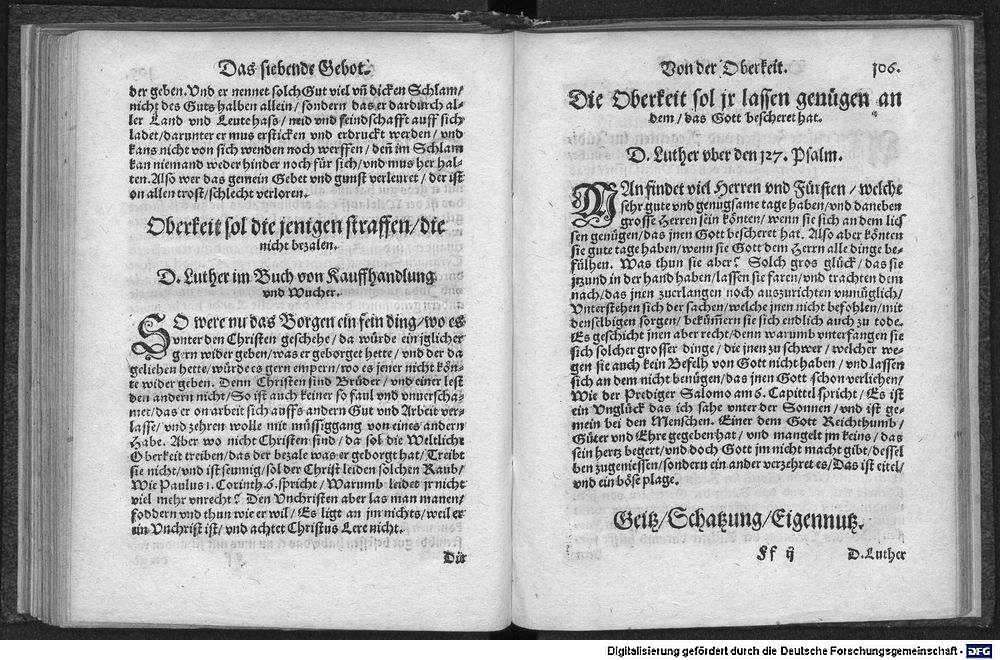 Das siebende Gebot.
der geben. Vnd er nennet solch Gut viel vñ dicken Schlam/
nicht des Guts halben allein/ sondern das er dardurch al-
ler Land vnd Leute hass/ neid vnd feindschafft auff sich
ladet/ darunter er mus ersticken vnd erdruckt werden/ vnd
kans nicht von sich wenden noch werffen/ deñ im Schlam
kan niemand weder hinder noch für sich/ vnd mus her hal-
ten. Also wer das gemein Gebet vnd gunst verleuret/ der ist
on allen trost/ schlecht verloren.
Oberkeit sol die jenigen straffen/ die
nicht bezalen.
D. Luther im Buch von Kauffhandlung
vnd Wucher.
SO were nu das Borgen ein fein ding/ wo es
vnter den Christen geschehe/ da würde ein jglicher
gern wider geben/ was er geborget hette/ vnd der da
geliehen hette/ würde es gern empern/ wo es jener nicht kön-
te wider geben. Denn Christen sind Brüder/ vnd einer lest
den andern nicht/ So ist auch keiner so faul vnd vnuerscha-
met/ das er on arbeit sich auffs andern Gut vnd Arbeit ver-
lasse/ vnd zehren wolle mit müssiggang von eines andern
Habe. Aber wo nicht Christen sind/ da sol die Weltliche
Oberkeit treiben/ das der bezale was er geborgt hat/ Treibt
sie nicht/ vnd ist seumig/ sol der Christ leiden solchen Raub/
Wie Paulus 1. Corinth. 6. spricht/ Warumb leidet jr nicht
viel mehr vnrecht? Den Vnchristen aber las man manen/
foddern vnd thun wie er wil/ Es ligt an jm nichts/ weil er
ein Vnchrist ist/ vnd achtet Christus Lere nicht.
Die
Von der Oberkeit. 106.
Die Oberkeit sol jr lassen genügen an
dem/ das Gott bescheret hat.
D. Luther vber den 127. Psalm.
MAn findet viel Herren vnd Fürsten/ welche
sehr gute vnd genugsame tage haben/ vnd daneben
grosse Herren sein könten/ wenn sie sich an dem lies
sen genügen/ das jnen Gott bescheret hat. Also aber könten
sie gute tage haben/ wenn sie Gott dem Herrn alle dinge be-
fülhen. Was thun sie aber? Solch gros glück/ das sie
jtzund in der hand haben/ lassen sie faren/ vnd trachten dem
nach/ das jnen zuerlangen noch auszurichten vnmüglich/
Vnterstehen sich der sachen/ welche jnen nicht befohlen/ mit
denselbigen sorgen/ bekümern sie sich endlich auch zu tode.
Es geschicht jnen aber recht/ denn warumb vnterfangen sie
sich solcher grosser dinge/ die jnen zu schwer/ welcher we-
gen sie auch kein Befelh von Gott nicht haben/ vnd lassen
sich an dem nicht benügen/ das jnen Gott schon verliehen/
Wie der Prediger Salomo am 6. Capittel spricht/ Es ist
ein Vnglück das ich sahe vnter der Sonnen/ vnd ist ge-
mein bei den Menschen. Einer dem Gott Reichthumb/
Güter vnd Ehre gegeben hat/ vnd mangelt jm keins/ das
sein hertz begert/ vnd doch Gott jm nicht macht gibt/ dessel
ben zugeniessen/ sondern ein ander verzehret es/ Das ist eitel/
vnd ein böse plage.
Geitz/ Schatzung/ Eigennutz.
Ff ij D. Luther
Digitalisierung gefördert durch die Deutsche Forschungsgemeinschaft - DFG